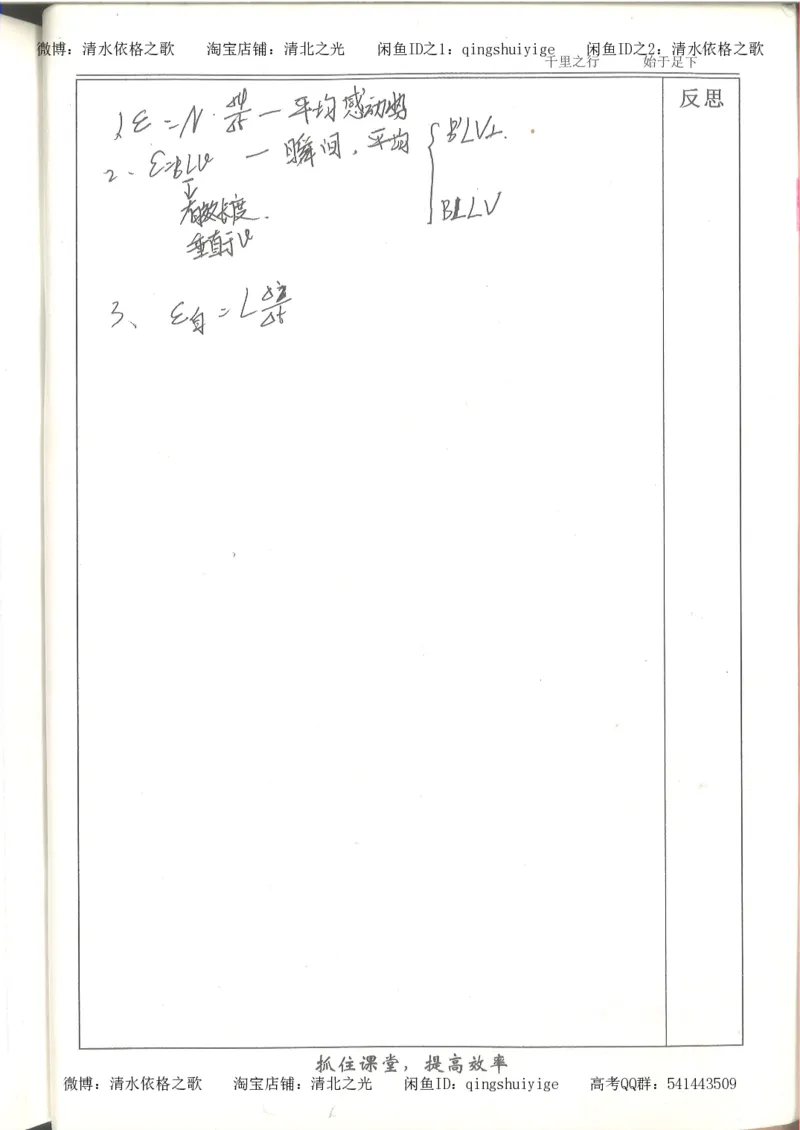 微博：清水依格之歌 淘宝店铺：清北之光 闲鱼ID之1：qingshuiyige 闲鱼ID之2：清水依格之歌
千里之行 始于足下
反思
1、ε = N · Δψ/Δt — 平均感动势
2、ε=BLv — 瞬间，平均 { BLV⊥.
B⊥LV
↓
有效长度.
垂直于v
3、ε自 = L Δi/Δt
抓住课堂，提高效率
微博：清水依格之歌 淘宝店铺：清北之光 闲鱼ID：qingshuiyige 高考QQ群：541443509